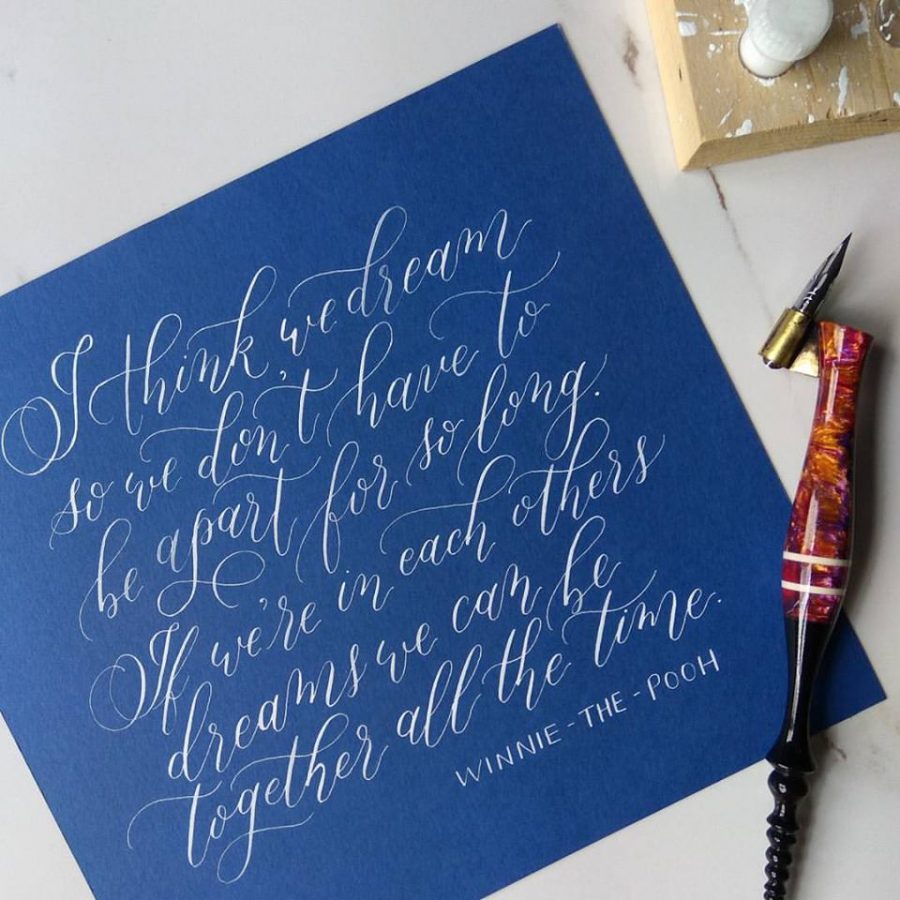 I think we dream
so we don't have to
be apart for so long.
If we're in each others
dreams we can be
together all the time.
WINNIE-THE-POOH